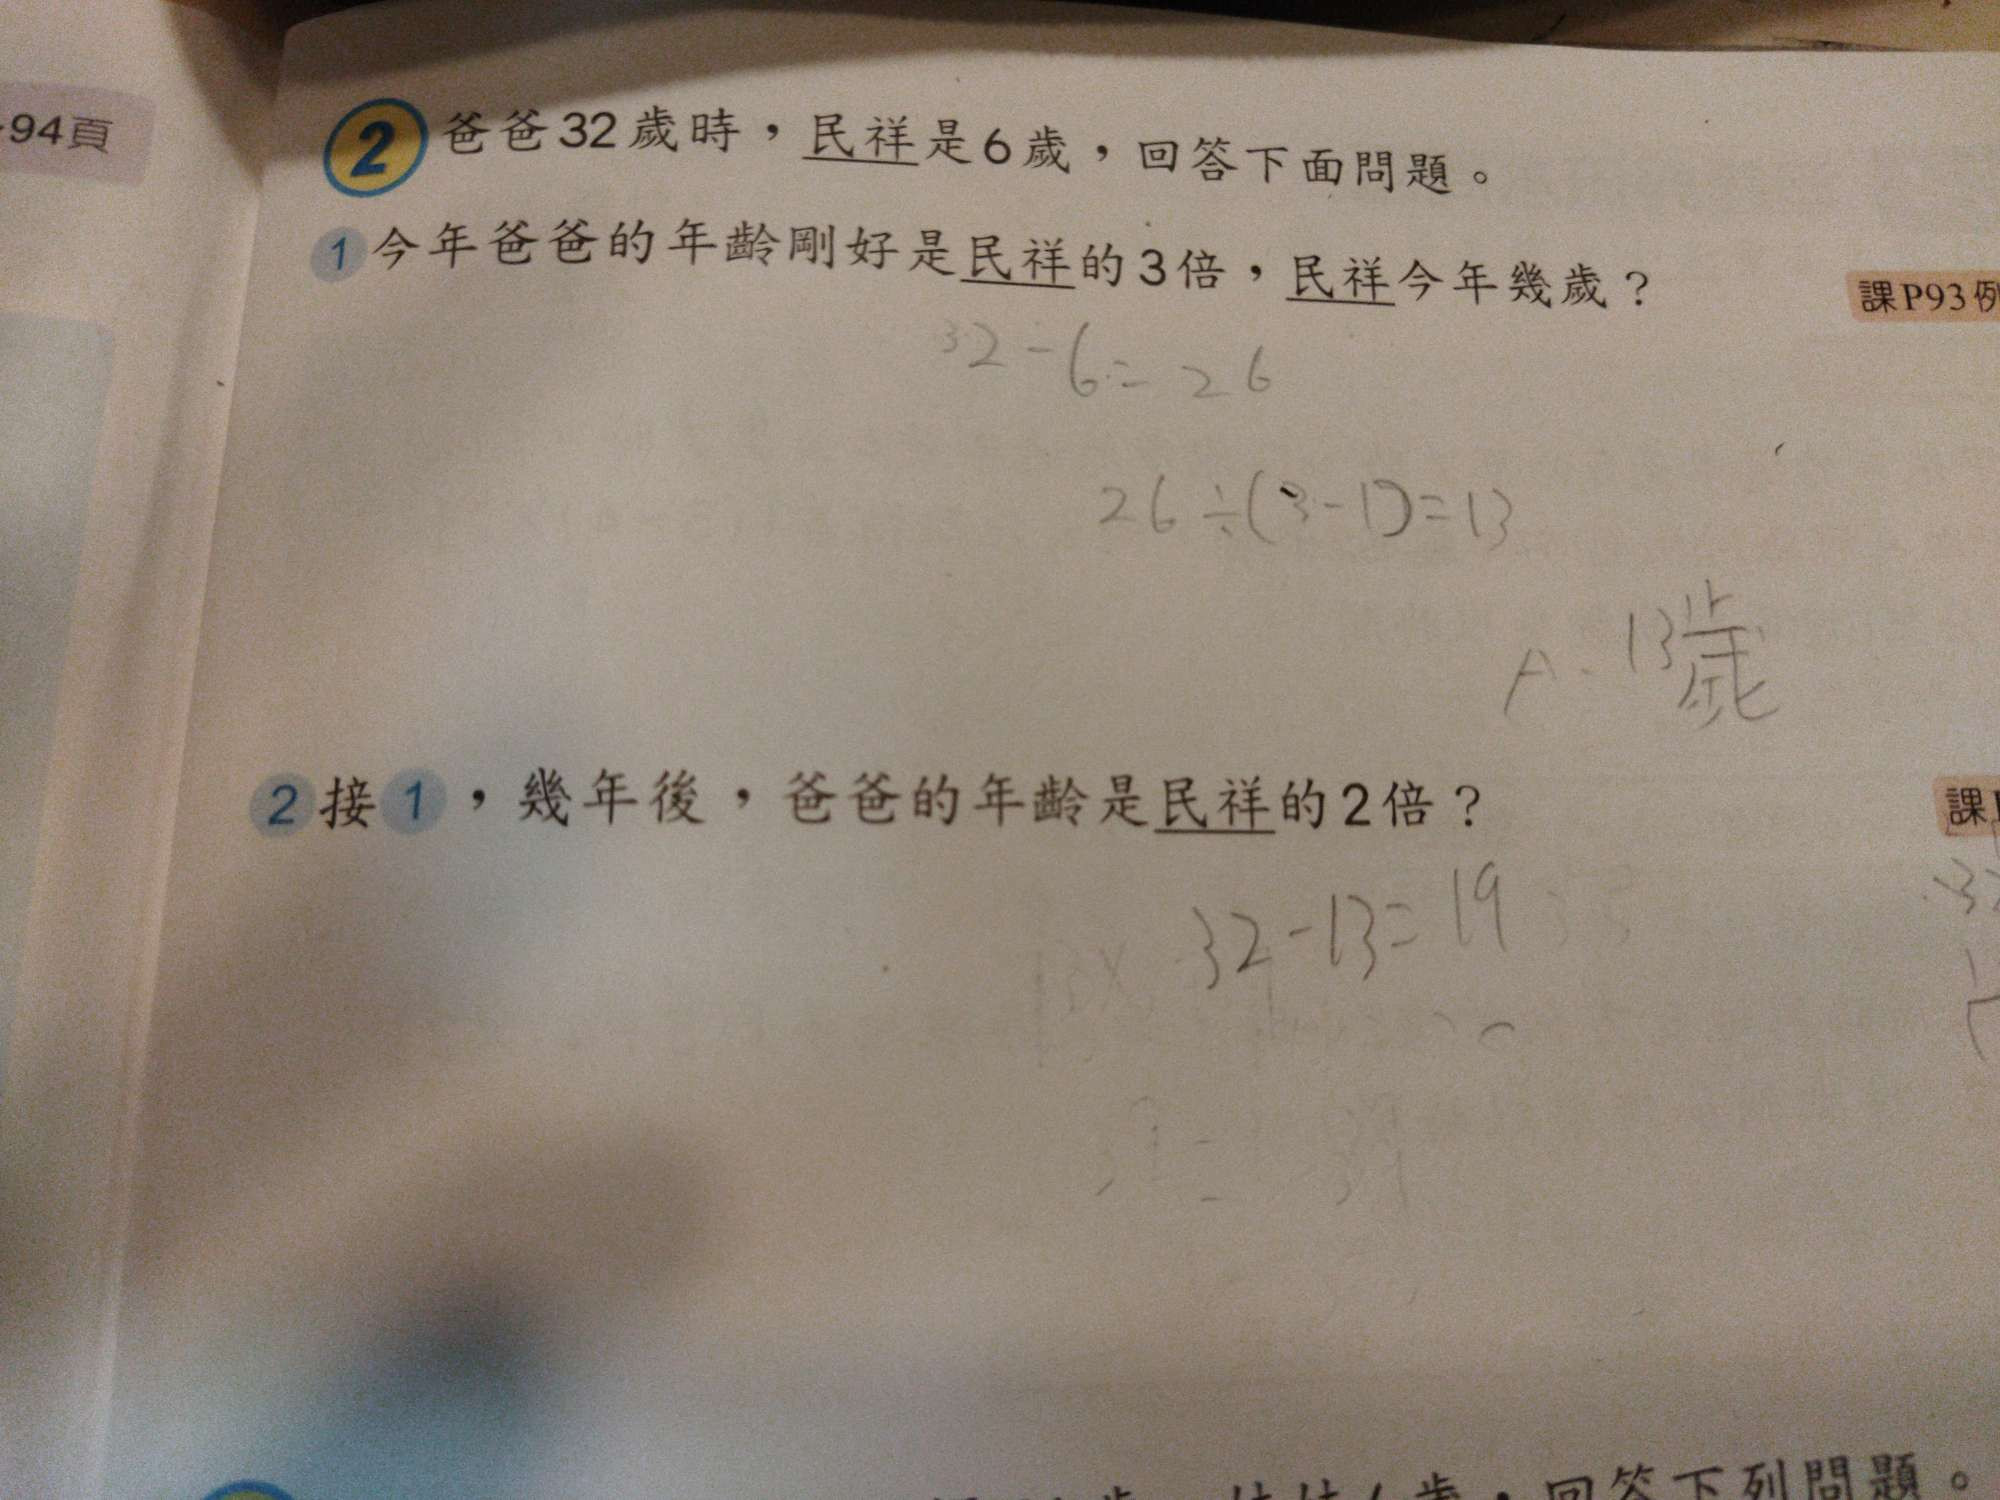 94頁
2 爸爸32歲時，民祥是6歲，回答下面問題。
1 今年爸爸的年齡剛好是民祥的3倍，民祥今年幾歲？
課P93例
32-6=26
26÷(3-1)=13
A. 13歲
2 接1，幾年後，爸爸的年齡是民祥的2倍？
課
32-13=19
回答下列問題。